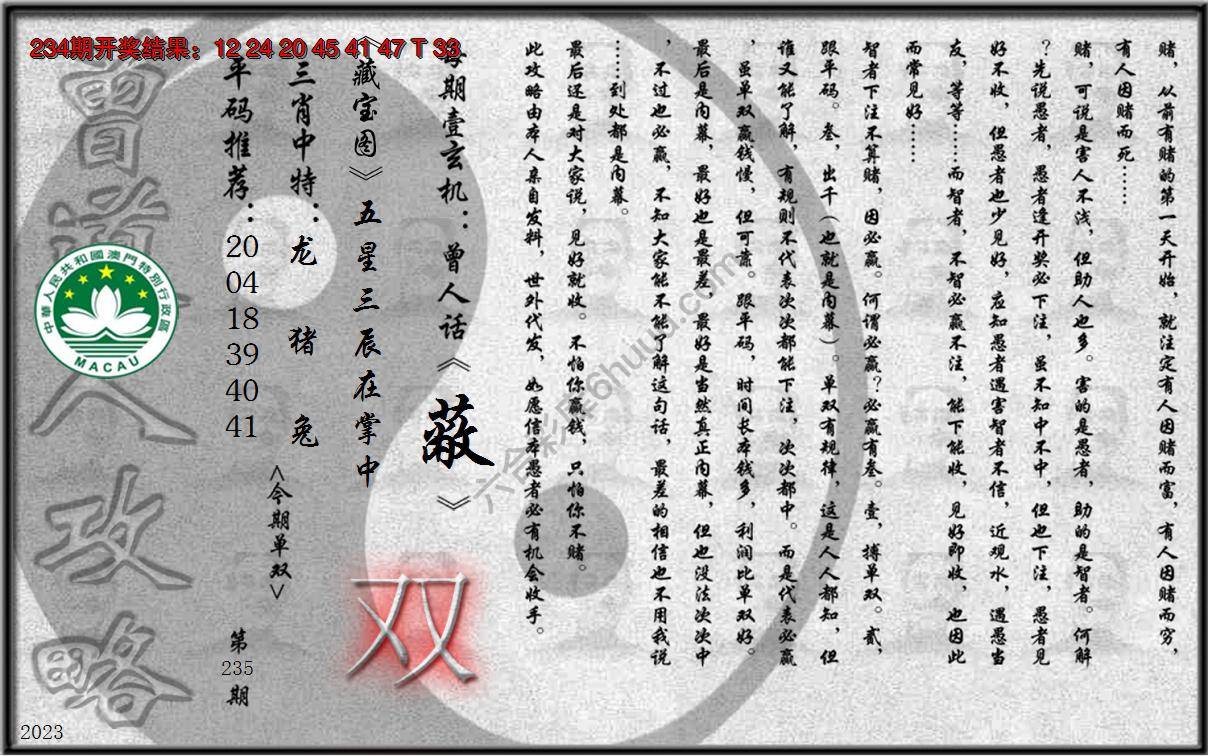 234期开奖结果：12 24 20 45 41 47 T 33
赌，从前有赌的第一天开始，就注定有人因赌而富，有人因赌而穷，
有人因赌而死……
赌，可说是害人不浅，但助人也多。害的是愚者，助的是智者。何解
？先说愚者，愚者逢开奖必下注，虽不知中不中，但也下注，愚者见
好不收，但愚者也少见好，应知愚者遇害智者不信，近观水，遇愚当
友，等等……而智者，不智必赢不注，能下能收，见好即收，也因此
而常见好……
智者下注不算赌，因必赢。何谓必赢？必赢有叁。壹，搏单双。贰，
跟平码。叁，出千（也就是内幕）。单双有规律，这是人人都知，但
谁又能了解，有规则不代表次次都能下注，次次都中。而是代表必赢
，虽单双赢钱慢，但可靠。跟平码，时间长本钱多，利润比单双好。
最后是内幕，最好也是最差，最好是当然真正内幕，但也没法次次中
，不过也必赢，不知大家能不能了解这句话，最差的相信也不用我说
……到处都是内幕。
最后还是对大家说，见好就收。不怕你赢钱，只怕你不赌。
此攻略由本人亲自发料，世外代发，如愿信本愚者必有机会收手。
每期壹玄机：曾人话《蔽》
《藏宝图》五星三辰在掌中
三肖中特：龙 猪 兔
平码推荐：20 04 18 39 40 41
<今期单双>
双
第235期
曾道人攻略
中華人民共和國澳門特別行政區
MACAU
2023